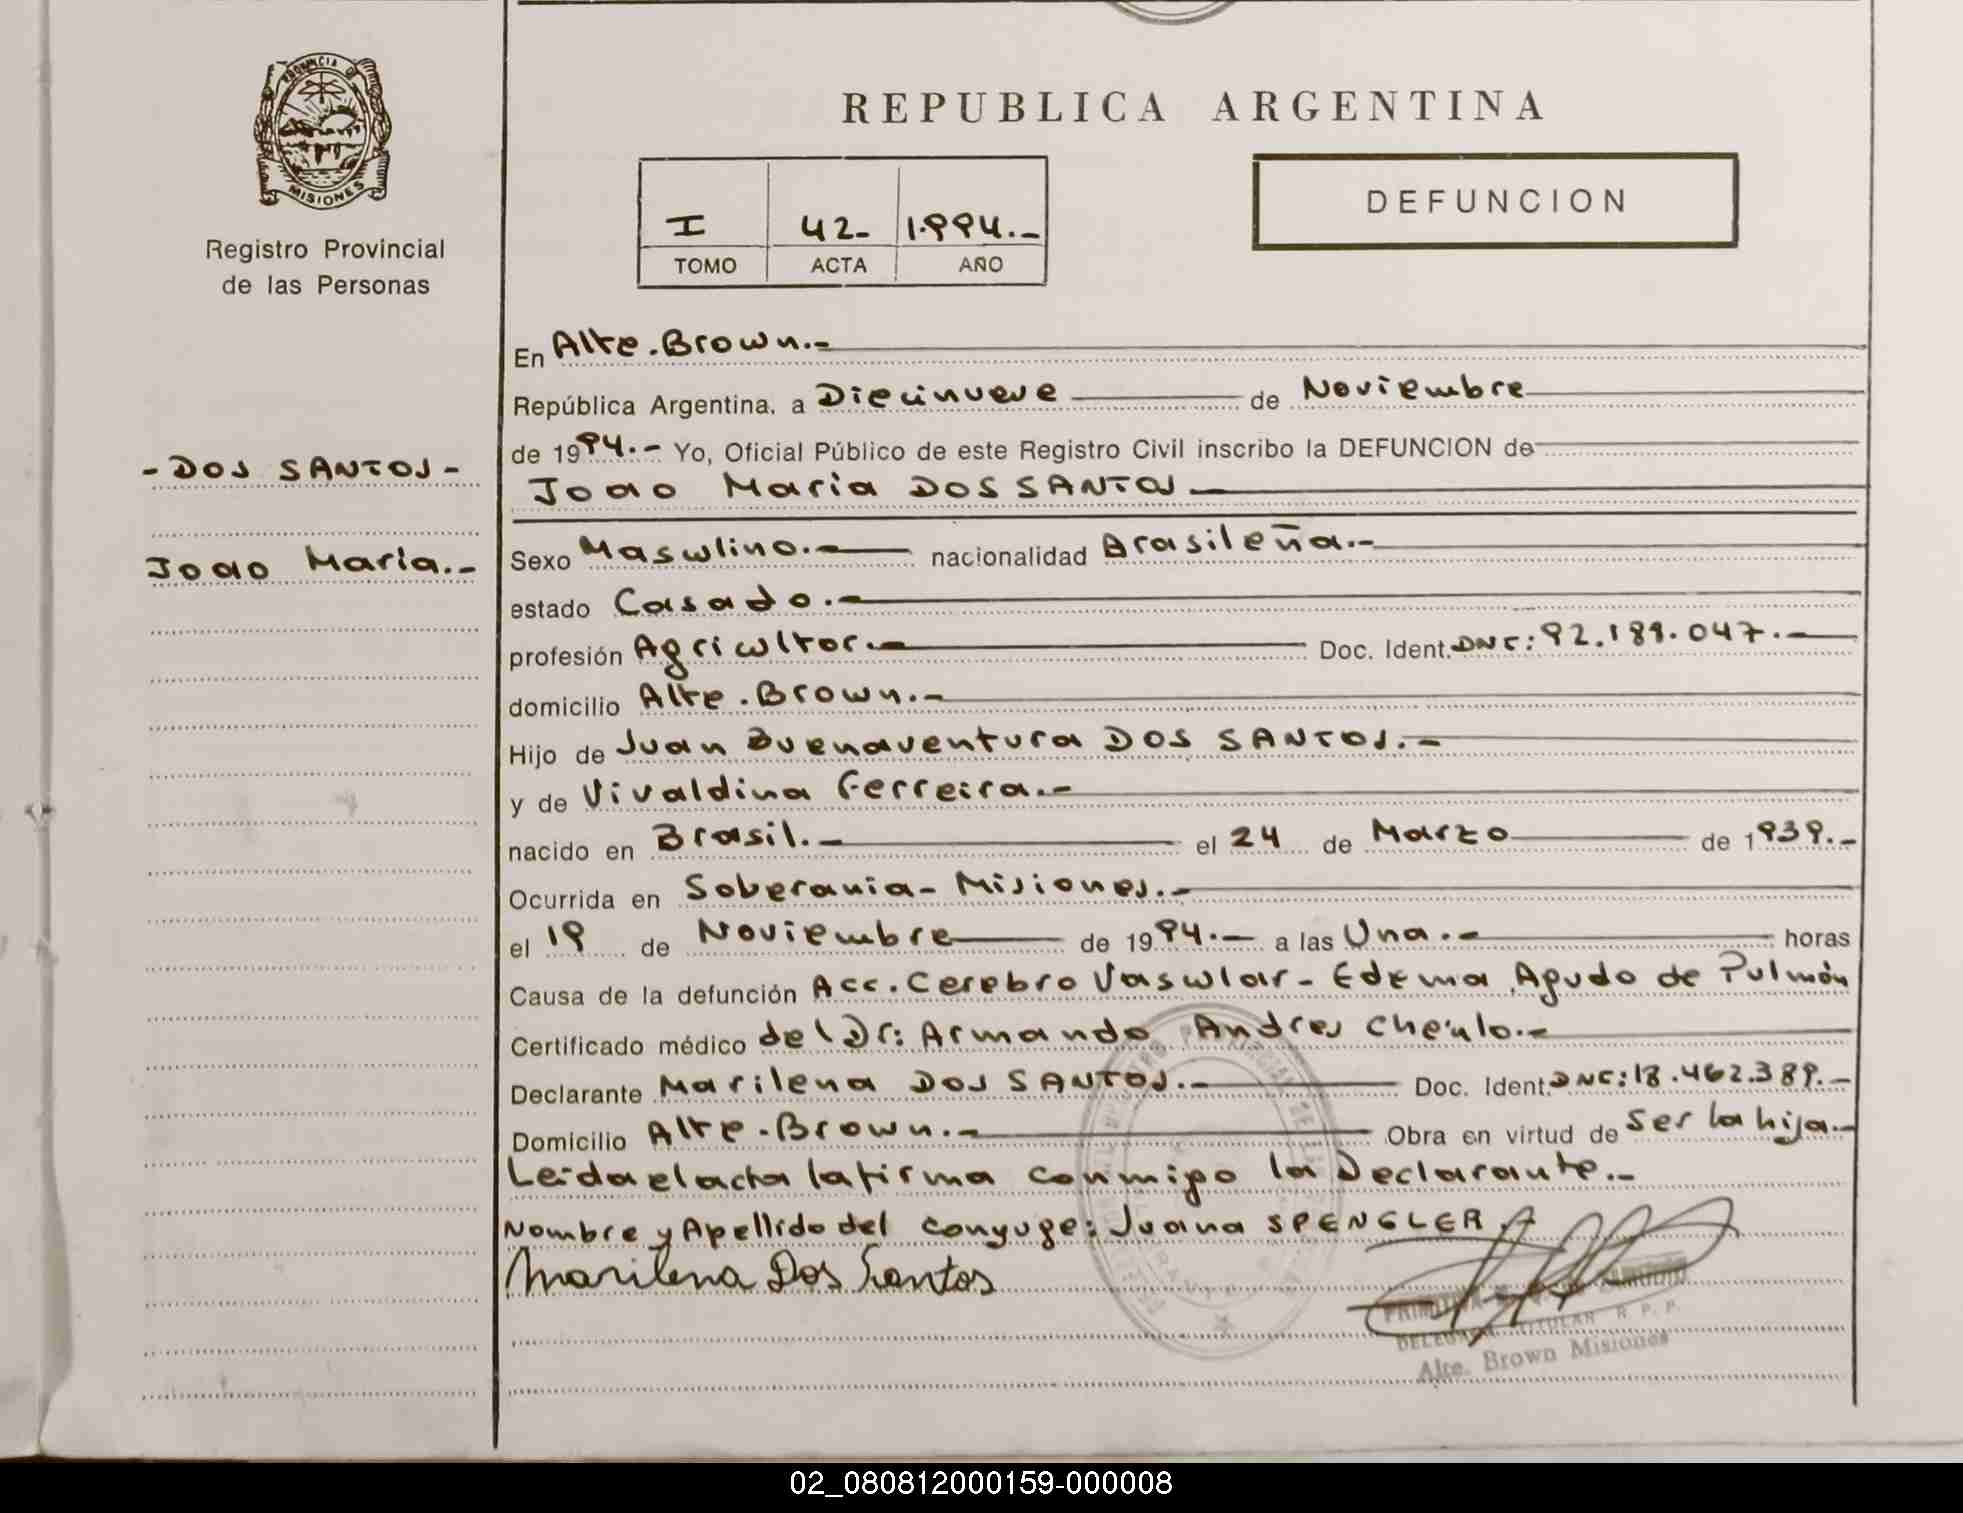 PROVINCIA D
MISIONES
Registro Provincial
de las Personas
REPUBLICA ARGENTINA
I 42- 1.994.-
TOMO ACTA AÑO
DEFUNCION
- DOS SANTOS -
Joao Maria.-
En Alte. Brown.-
República Argentina, a Diecinueve de Noviembre
de 1994.- Yo, Oficial Público de este Registro Civil inscribo la DEFUNCION de
Joao Maria DOS SANTOS
Sexo Masculino.- nacionalidad Brasileña.-
estado Casado.-
profesión Agricultor.- Doc. Ident. DNI: 92.189.047.-
domicilio Alte. Brown.-
Hijo de Juan Buenaventura DOS SANTOS.-
y de Vivaldina Ferreira.-
nacido en Brasil.- el 24 de Marzo de 1939.-
Ocurrida en Soberania - Misiones.-
el 19 de Noviembre de 1994.- a las Una.- horas
Causa de la defunción Acc. Cerebro Vascular - Edema Agudo de Pulmón
Certificado médico del Dr: Armando Andres
Declarante Marilena DOS SANTOS.- Doc. Ident. DNI: 18.462.389.-
Domicilio Alte. Brown.- Obra en virtud de Ser la hija.-
Leida el acta la firma conmigo la Declarante.-
Nombre y Apellido del conyuge: Juana SPENGLER.-
Marilena Dos Santos
TITULAR R. P. P.
Alte. Brown Misiones
02_080812000159-000008